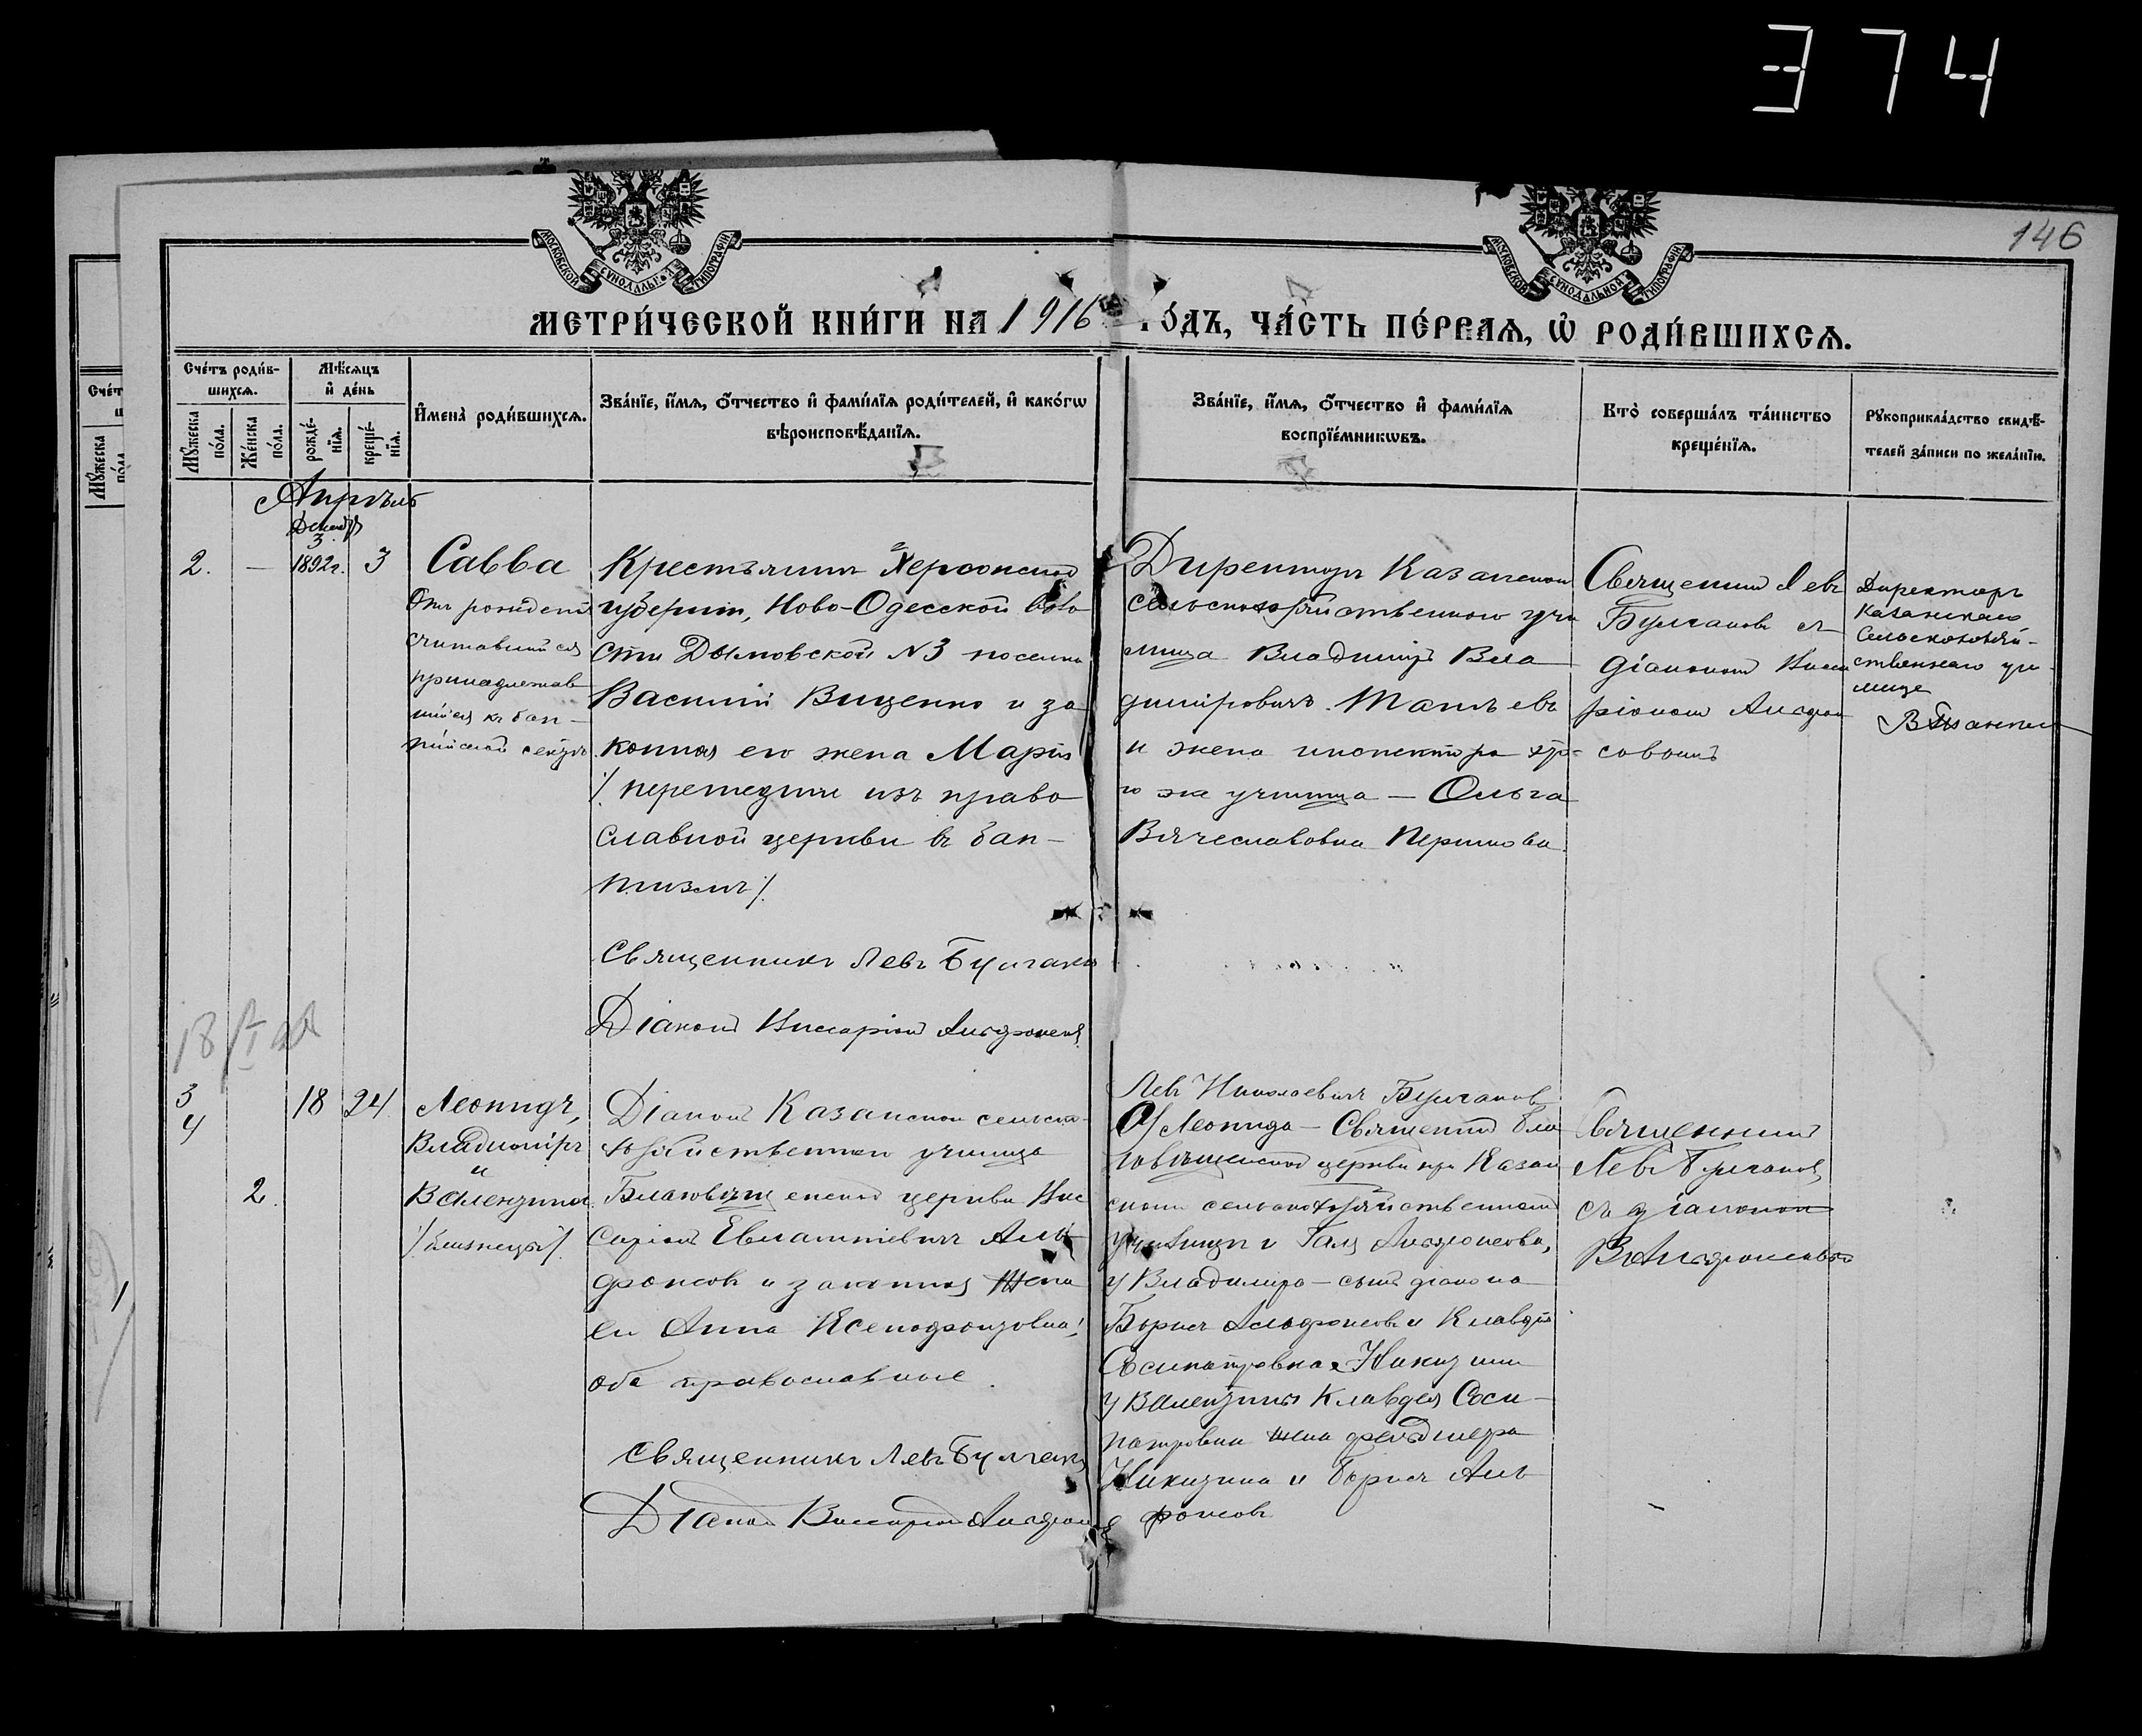 374
146
МОСКОВСКОЙ СѴНОДАЛЬНОЙ ТИПОГРАФІИ
МОСКОВСКОЙ СѴНОДАЛЬНОЙ ТИПОГРАФІИ
МЕТРИ́ЧЕСКОЙ КНИ́ГИ НА 1916 ГО́ДЪ, ЧА́СТЬ ПЕ́РВАЯ, Ѡ҆ РОДИ́ВШИХСЯ.
Счетъ роди́в-
шихся.
Мꙋжеска по́ла.
Же́нска по́ла.
Мѣсяцъ
и҆ де́нь
рожде́-
нїя.
креще́-
нїя.
И҆мена̀ роди́вшихся.
Зва́нїе, и҆́мя, ѻ҆́тчество и҆ фами́лїя роди́телей, и҆ како́гѡ
вѣроисповѣ́данїя.
Зва́нїе, и҆́мя, ѻ҆́тчество и҆ фами́лїя
воспрїе́мникѡвъ.
Кто̀ соверша́лъ та́инство
креще́нїя.
Рꙋкоприкла́дство свидѣ́-
телей за́писи по жела́нїю.
Апрѣль
Декабр
3
2. — 1892 г. 3
Савва
Отъ рожденія
считавшійся
принадлежав
шійся къ бап-
тійской сектѣ
Крестьянинъ Херсонской
губерніи, Ново-Одесской воло
сти Дымовской №3 поселка
Василій Виценко и за
конная его жена Марія
/. перешедшіе изъ право
славной церкви въ бап-
тизмъ /.
Священникъ Левъ Булгаковъ
Діаконъ Виссаріонъ Альфонсовъ
Директоръ Казанскаго
сельскохозяйственнаго учи
лища Владиміръ Вла
диміровичъ
и жена инспектора
го же училища — Ольга
Вячеславовна
Священникъ Левъ
Булгаковъ съ
діакономъ Висса
ріономъ Альфон
совымъ
Директоръ
Казанскаго
Сельскохозяй-
ственнаго учи-
лища
3
4
2.
18 24
Леонидъ,
Владиміръ
и
Валентина
/близнецы/
Діаконъ Казанской сельско-
хозяйственнаго училища
Благовѣщенской церкви Вис
саріонъ Евлампіевичъ Аль
фонсовъ и законная жена
его Анна Ксенофонтовна,
оба православные.
Священникъ Левъ Булгаковъ
Діаконъ Виссаріонъ Альфонсовъ
Левъ Николаевичъ Булгаковъ
У Леонида — Священникъ Бла
говѣщенской церкви при Казан
скомъ сельскохозяйственномъ
училищѣ и Альфонсова,
у Владиміра — сынъ діакона
Борисъ Альфонсовъ и Клавдія
Сосипатровна Никитина
у Валентины Клавдія Соси-
патровна жена фельдшера
Никитина и Борисъ Аль
фонсовъ
Священникъ
Левъ Булгаковъ
съ діакономъ
В. Альфонсовымъ